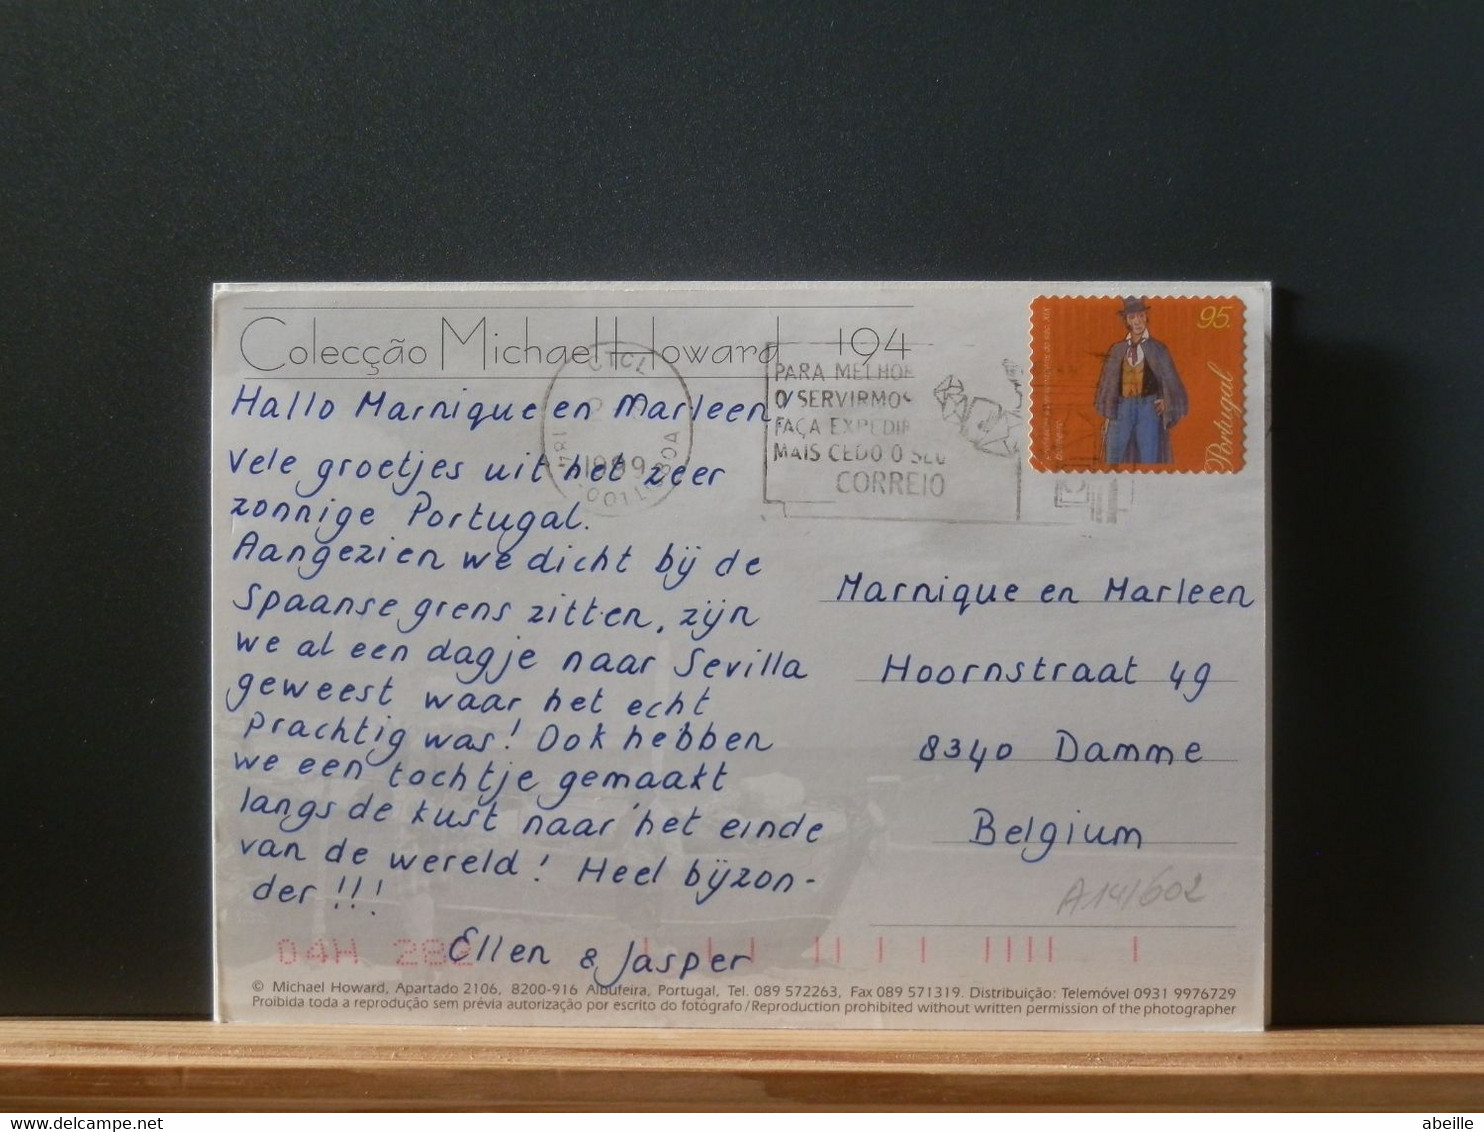 Colecção Michael Howard 194
PARA MELHOR
O SERVIRMOS
FAÇA EXPEDIR
MAIS CEDO O SEU
CORREIO
1999
95.
Portugal
Hallo Marnique en Marleen
Vele groetjes uit het zeer
zonnige Portugal.
Aangezien we dicht bij de
Spaanse grens zitten, zijn
we al een dagje naar Sevilla
geweest waar het echt
prachtig was! Ook hebben
we een tochtje gemaakt
langs de kust naar het einde
van de wereld! Heel bijzon-
der !!!
Ellen & Jasper
Marnique en Marleen
Hoornstraat 49
8340 Damme
Belgium
A14/602
04H 282
© Michael Howard, Apartado 2106, 8200-916 Albufeira, Portugal, Tel. 089 572263, Fax 089 571319. Distribuição: Telemóvel 0931 9976729
Proibida toda a reprodução sem prévia autorização por escrito do fotógrafo/Reproduction prohibited without written permission of the photographer
abeille